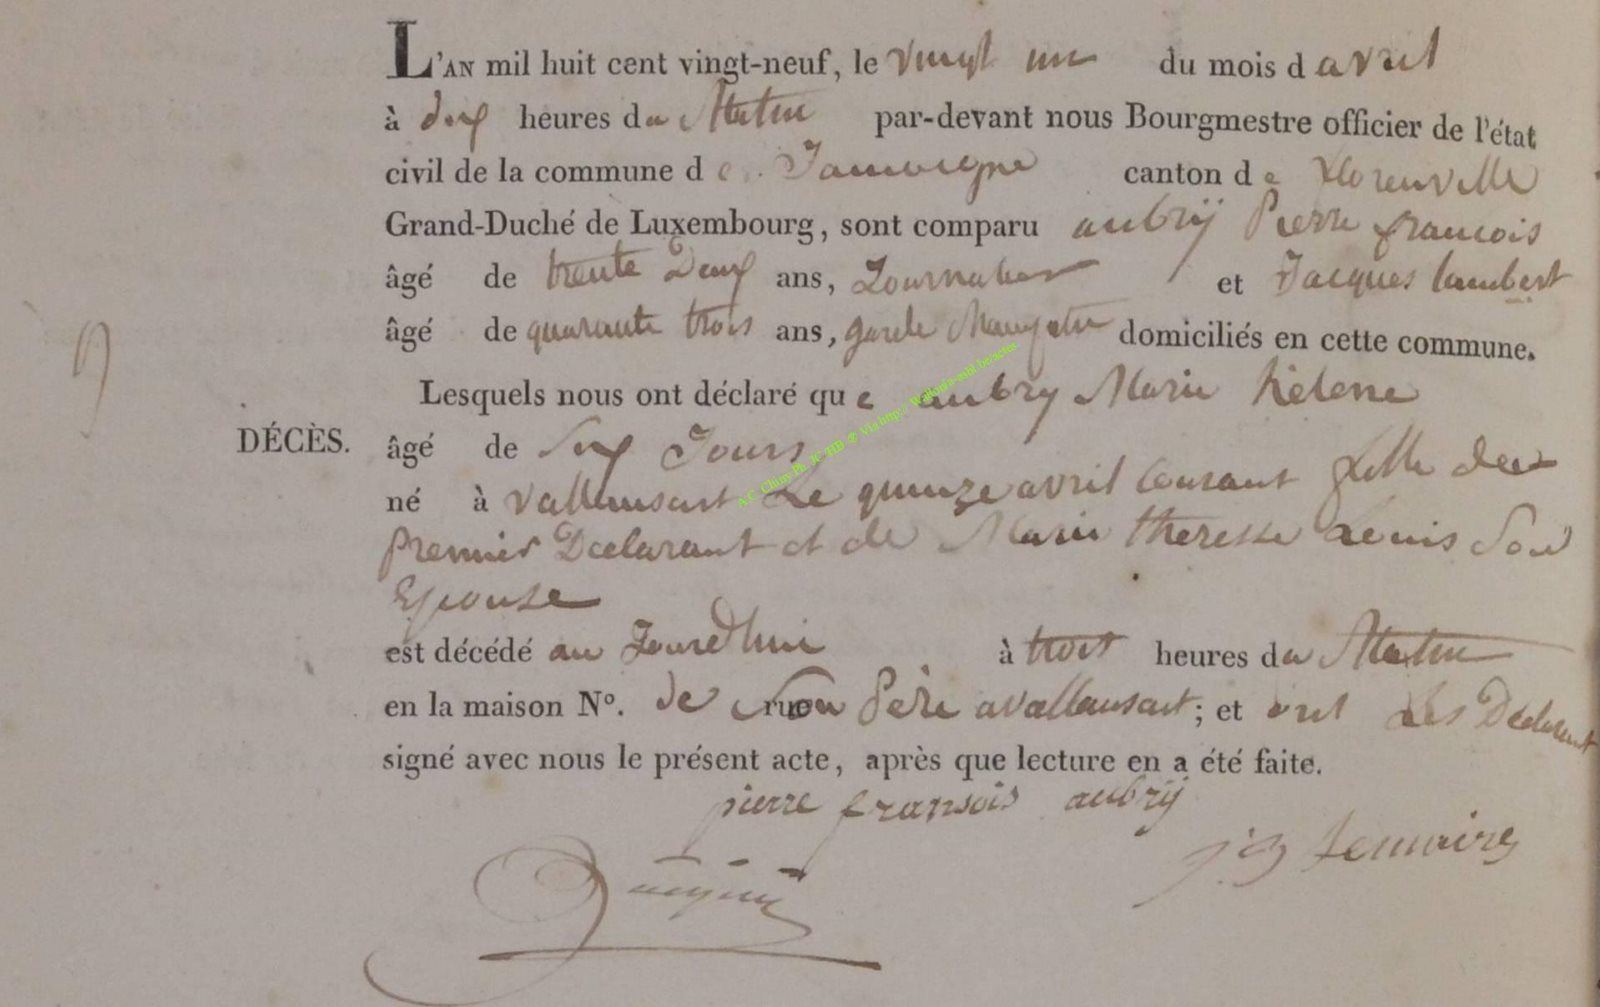 L'AN mil huit cent vingt-neuf, le vingt un du mois d avril
à dix heures du Matin par-devant nous Bourgmestre officier de l'état
civil de la commune de Jamoigne canton de florenville
Grand-Duché de Luxembourg, sont comparu aubrÿ Pierre francois
âgé de trente Deux ans, Journalier et Jacques lambert
âgé de quarante trois ans, garde domiciliés en cette commune.
Lesquels nous ont déclaré que aubry Marie hélene
DÉCÈS. âgé de Six Jours
né à vallansart Le quinze avril Courant fille du
premier Declarant et de Marie theresse Louis Son
Epouse
est décédé au Jourdhui à trois heures du Matin
en la maison N°. de rue son Père a vallansart; et ont Les Declarant
signé avec nous le présent acte, après que lecture en a été faite.
pierre fransois aubrÿ
j.B Lemaire
Jacques
A.C. Chiny Ph. JC-HB @ Via http://Wallonia-asbl.be/actes